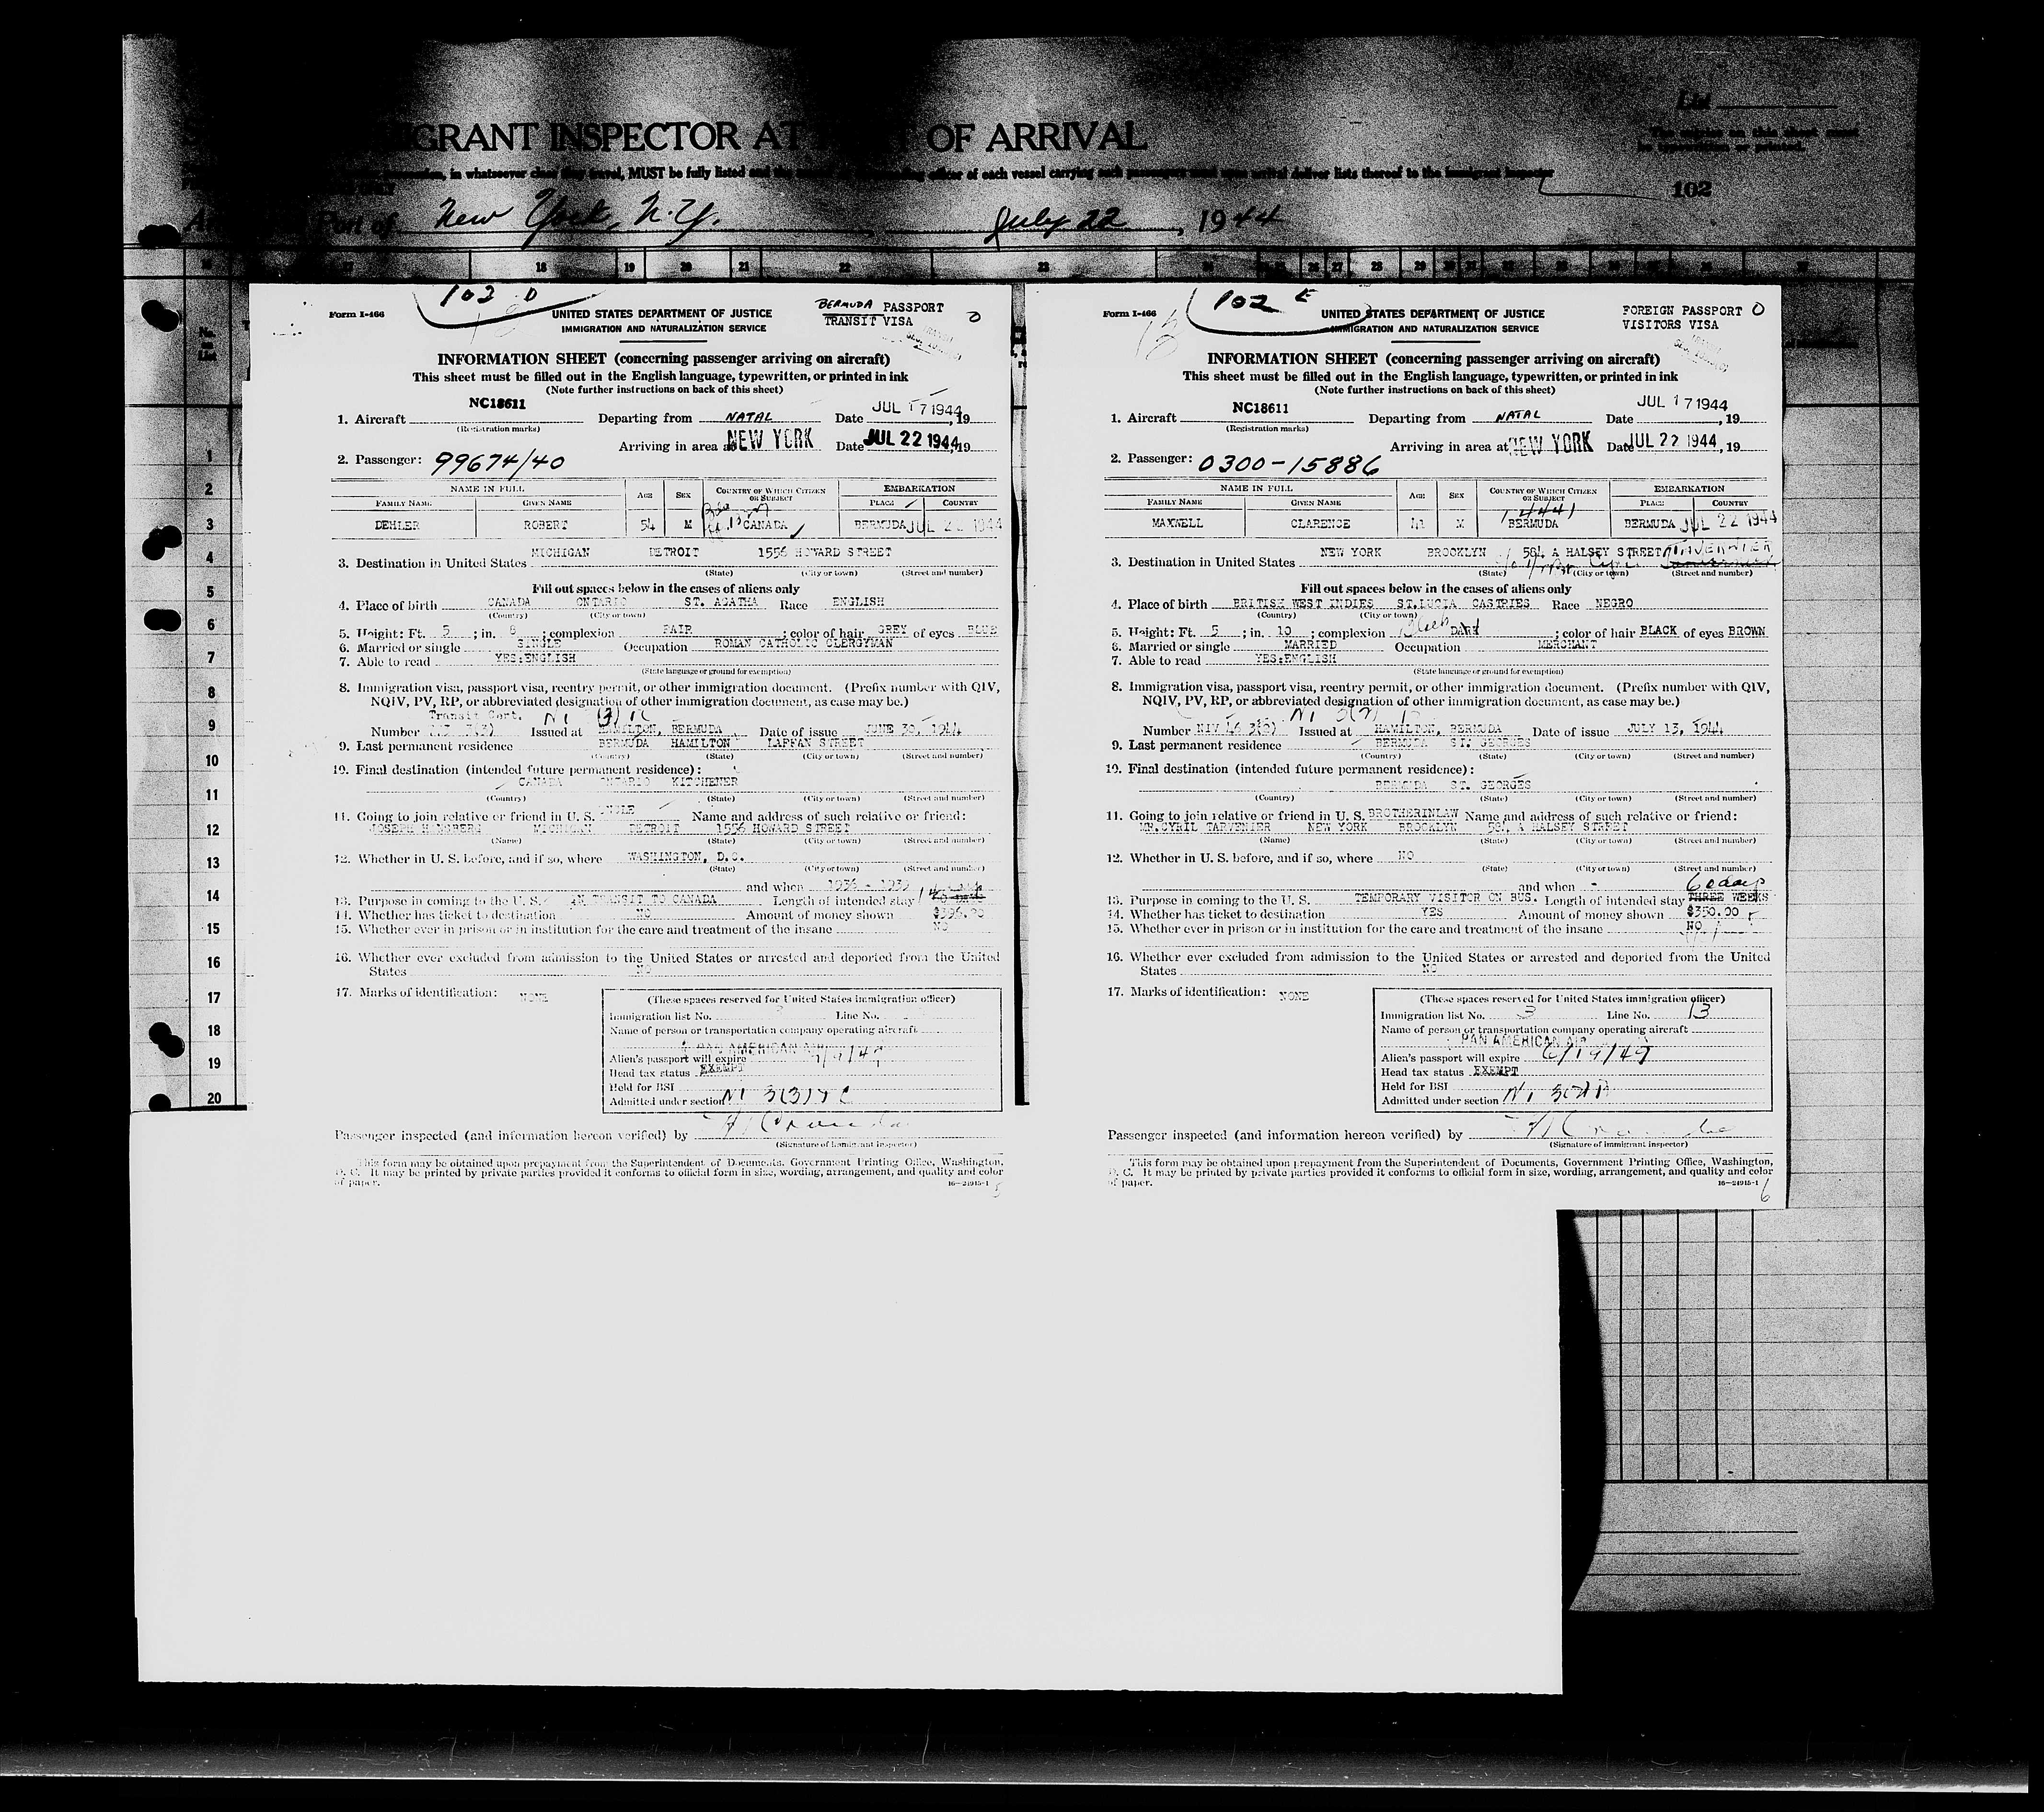 List
IGRANT INSPECTOR AT OF ARRIVAL
in whatsoever class they travel, MUST be fully listed and the officer of each vessel carrying such passengers must upon arrival deliver lists thereof to the immigrant inspector
102
Port of New York, N.Y. July 22, 1944
17 18 19 20 21 22 23
No. in List
1
2
3
4
5
6
7
8
9
10
11
12
13
14
15
16
17
18
19
20
102 D
Form I-466
UNITED STATES DEPARTMENT OF JUSTICE
IMMIGRATION AND NATURALIZATION SERVICE
BERMUDA PASSPORT
TRANSIT VISA
INFORMATION SHEET (concerning passenger arriving on aircraft)
This sheet must be filled out in the English language, typewritten, or printed in ink
(Note further instructions on back of this sheet)
1. Aircraft NC18611 Departing from NATAL Date JUL 17 1944, 19
(Registration marks)
Arriving in area at NEW YORK Date JUL 22 1944, 19
2. Passenger: 99674/40
NAME IN FULL AGE SEX COUNTRY OF WHICH CITIZEN OR SUBJECT EMBARKATION
FAMILY NAME GIVEN NAME PLACE COUNTRY
DEHLER ROBERT 54 M CANADA BERMUDA JUL 22 1944
3. Destination in United States MICHIGAN DETROIT 1556 HOWARD STREET
(State) (City or town) (Street and number)
Fill out spaces below in the cases of aliens only
4. Place of birth CANADA ONTARIO ST. AGATHA Race ENGLISH
(Country) (City or town)
5. Height: Ft. 5 ; in. 8 ; complexion FAIR ; color of hair GREY of eyes BLUE
6. Married or single SINGLE Occupation ROMAN CATHOLIC CLERGYMAN
7. Able to read YES:ENGLISH
(State language or ground for exemption)
8. Immigration visa, passport visa, reentry permit, or other immigration document. (Prefix number with QIV,
NQIV, PV, RP, or abbreviated designation of other immigration document, as case may be.)
Transit Cert.
Number Issued at HAMILTON, BERMUDA Date of issue JUNE 30, 1944
9. Last permanent residence BERMUDA HAMILTON LAFFAN STREET
(Country) (State) (City or town) (Street and number)
10. Final destination (intended future permanent residence):
CANADA ONTARIO KITCHENER
(Country) (State) (City or town) (Street and number)
11. Going to join relative or friend in U. S. UNCLE Name and address of such relative or friend:
JOSEPH MICHIGAN DETROIT 1556 HOWARD STREET
(Name) (State) (City or town) (Street and number)
12. Whether in U. S. before, and if so, where WASHINGTON, D.C.
(State) (City or town) (Street and number)
and when
13. Purpose in coming to the U. S. IN TRANSIT TO CANADA Length of intended stay
14. Whether has ticket to destination NO Amount of money shown
15. Whether ever in prison or in institution for the care and treatment of the insane NO
16. Whether ever excluded from admission to the United States or arrested and deported from the United
States NO
17. Marks of identification: NONE
(These spaces reserved for United States immigration officer)
Immigration list No. Line No.
Name of person or transportation company operating aircraft
PAN AMERICAN AIR
Alien's passport will expire
Head tax status EXEMPT
Held for BSI
Admitted under section
Passenger inspected (and information hereon verified) by
(Signature of immigrant inspector)
This form may be obtained upon prepayment from the Superintendent of Documents, Government Printing Office, Washington,
D. C. It may be printed by private parties provided it conforms to official form in size, wording, arrangement, and quality and color
of paper. 16—24915-1
102 E
Form I-466
UNITED STATES DEPARTMENT OF JUSTICE
IMMIGRATION AND NATURALIZATION SERVICE
FOREIGN PASSPORT
VISITORS VISA
INFORMATION SHEET (concerning passenger arriving on aircraft)
This sheet must be filled out in the English language, typewritten, or printed in ink
(Note further instructions on back of this sheet)
1. Aircraft NC18611 Departing from NATAL Date JUL 17 1944, 19
(Registration marks)
Arriving in area at NEW YORK Date JUL 22 1944, 19
2. Passenger: 0300-15886
NAME IN FULL AGE SEX COUNTRY OF WHICH CITIZEN OR SUBJECT EMBARKATION
FAMILY NAME GIVEN NAME PLACE COUNTRY
MAXWELL CLARENCE 41 M BERMUDA BERMUDA JUL 22 1944
3. Destination in United States NEW YORK BROOKLYN 584 A HALSEY STREET TAVERNIER
(State) (City or town) (Street and number)
Fill out spaces below in the cases of aliens only
4. Place of birth BRITISH WEST INDIES ST.LUCIA CASTRIES Race NEGRO
(Country) (City or town)
5. Height: Ft. 5 ; in. 10 ; complexion Black DARK ; color of hair BLACK of eyes BROWN
6. Married or single MARRIED Occupation MERCHANT
7. Able to read YES:ENGLISH
(State language or ground for exemption)
8. Immigration visa, passport visa, reentry permit, or other immigration document. (Prefix number with QIV,
NQIV, PV, RP, or abbreviated designation of other immigration document, as case may be.)
Number NIV 46 3(2) Issued at HAMILTON, BERMUDA Date of issue JULY 13, 1944
9. Last permanent residence BERMUDA ST. GEORGES
(Country) (State) (City or town) (Street and number)
10. Final destination (intended future permanent residence):
BERMUDA ST. GEORGES
(Country) (State) (City or town) (Street and number)
11. Going to join relative or friend in U. S. BROTHERINLAW Name and address of such relative or friend:
MR.CYRIL TARVENIER NEW YORK BROOKLYN 584 A HALSEY STREET
(Name) (State) (City or town) (Street and number)
12. Whether in U. S. before, and if so, where NO
(State) (City or town) (Street and number)
and when - 60 days
13. Purpose in coming to the U. S. TEMPORARY VISITOR ON BUS. Length of intended stay THREE WEEKS
14. Whether has ticket to destination YES Amount of money shown $350.00
15. Whether ever in prison or in institution for the care and treatment of the insane NO
16. Whether ever excluded from admission to the United States or arrested and deported from the United
States NO
17. Marks of identification: NONE
(These spaces reserved for United States immigration officer)
Immigration list No. 3 Line No. 13
Name of person or transportation company operating aircraft
PAN AMERICAN AIR
Alien's passport will expire 6/19/49
Head tax status EXEMPT
Held for BSI
Admitted under section
Passenger inspected (and information hereon verified) by
(Signature of immigrant inspector)
This form may be obtained upon prepayment from the Superintendent of Documents, Government Printing Office, Washington,
D. C. It may be printed by private parties provided it conforms to official form in size, wording, arrangement, and quality and color
of paper. 16—24915-1
6